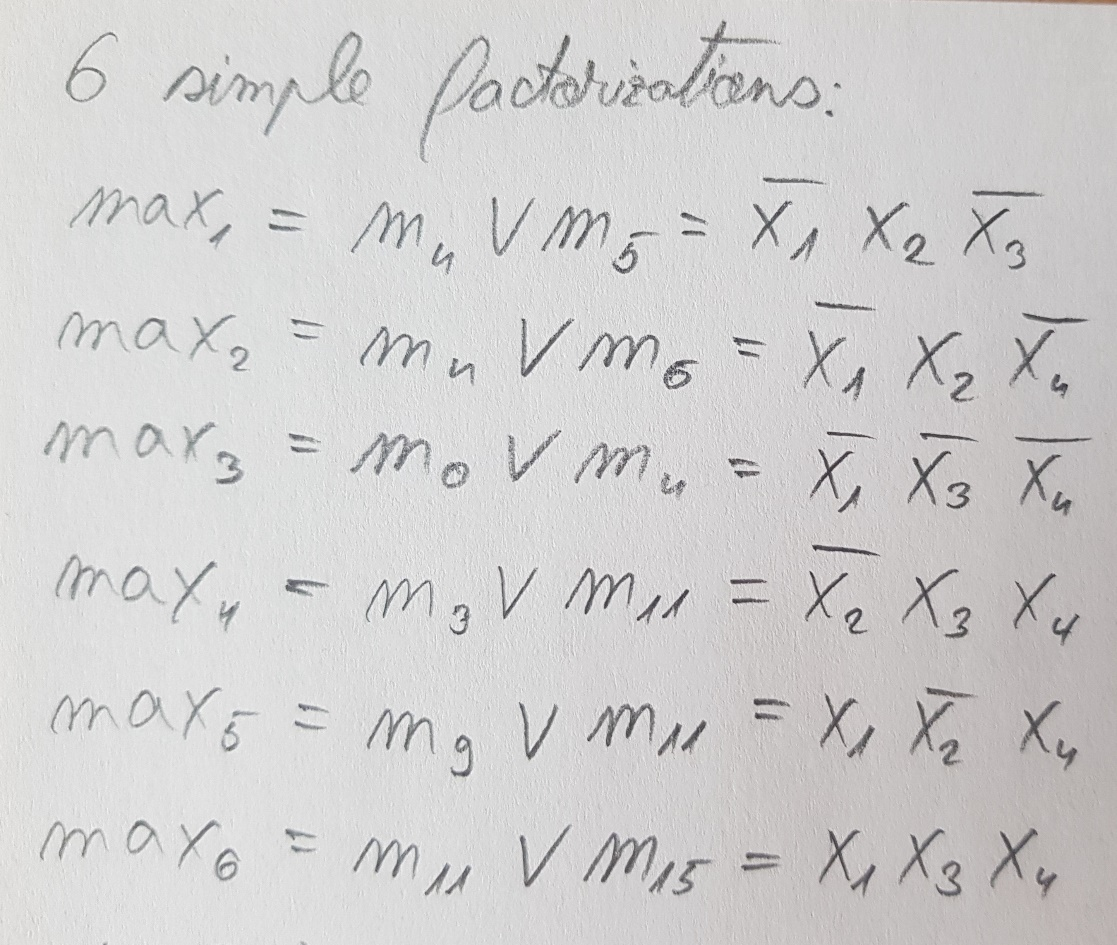 6 simple factorizations:
max₁ = m₄ ∨ m₅ = x̅₁ x₂ x̅₃
max₂ = m₄ ∨ m₆ = x̅₁ x₂ x̅₄
max₃ = m₀ ∨ m₄ = x̅₁ x̅₃ x̅₄
max₄ = m₃ ∨ m₁₁ = x̅₂ x₃ x₄
max₅ = m₉ ∨ m₁₁ = x₁ x̅₂ x₄
max₆ = m₁₁ ∨ m₁₅ = x₁ x₃ x₄